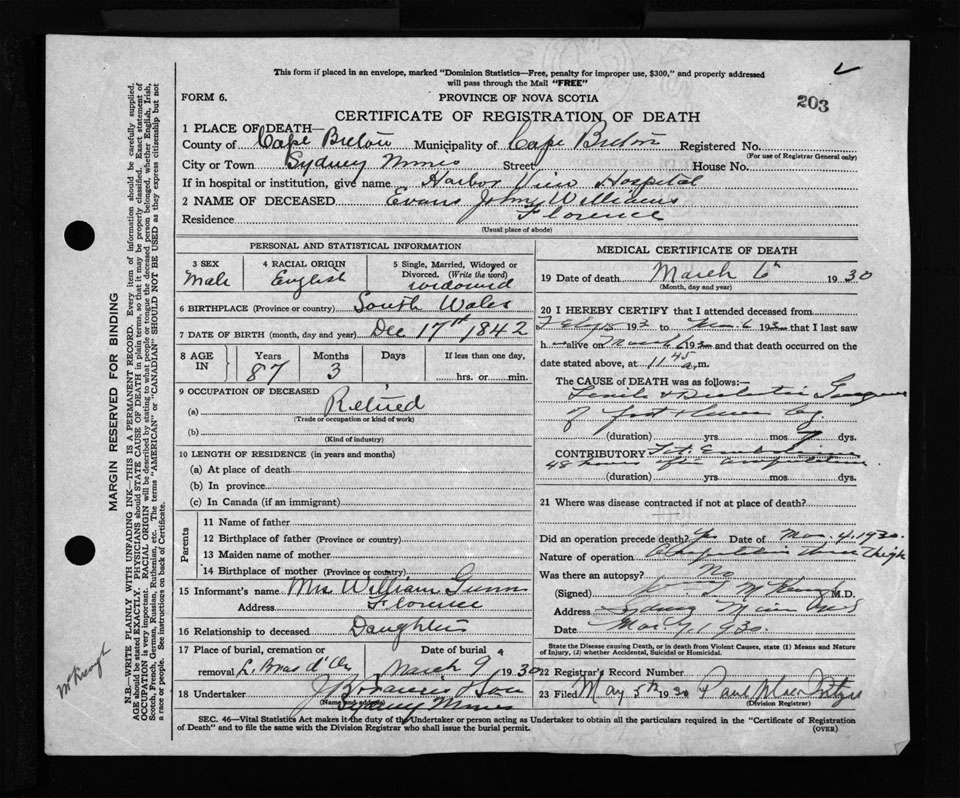 This form if placed in an envelope, marked "Dominion Statistics—Free, penalty for improper use, $300," and properly addressed
will pass through the Mail "FREE"
FORM 6.
PROVINCE OF NOVA SCOTIA
203
CERTIFICATE OF REGISTRATION OF DEATH
1 PLACE OF DEATH—
County of Cape Breton Municipality of Cape Breton Registered No.
(For use of Registrar General only)
City or Town Sydney Mines Street House No.
If in hospital or institution, give name Harbor View Hospital
2 NAME OF DECEASED Evans John Williams
Residence Florence
(Usual place of abode)
PERSONAL AND STATISTICAL INFORMATION
3 SEX 4 RACIAL ORIGIN 5 Single, Married, Widowed or
Divorced. (Write the word)
Male English widowed
6 BIRTHPLACE (Province or country) South Wales
7 DATE OF BIRTH (month, day and year) Dec 17th 1842
8 AGE IN Years Months Days If less than one day,
87 3 hrs. or min.
9 OCCUPATION OF DECEASED
(a) Retired
(Trade or occupation or kind of work)
(b)
(Kind of industry)
10 LENGTH OF RESIDENCE (in years and months)
(a) At place of death
(b) In province
(c) In Canada (if an immigrant)
Parents
11 Name of father
12 Birthplace of father (Province or country)
13 Maiden name of mother
14 Birthplace of mother (Province or country)
15 Informant's name Mrs William Gunn
Address Florence
16 Relationship to deceased Daughter
17 Place of burial, cremation or Date of burial
removal L. Bras d'Or March 9 1930
18 Undertaker J B Francis & Son
(Name and address)
Sydney Mines
MEDICAL CERTIFICATE OF DEATH
19 Date of death March 6th 1930
(Month, day and year)
20 I HEREBY CERTIFY that I attended deceased from
Feb 15 193 to Mar. 6 193 that I last saw
h alive on March 6 193 and that death occurred on the
date stated above, at 11 45 a.m.
The CAUSE OF DEATH was as follows:
Senile & Diabetic Gangrene
of foot & lower leg
(duration) yrs mos 7 dys.
CONTRIBUTORY Fat Embolism
48 hours after amputation
(duration) yrs mos dys.
21 Where was disease contracted if not at place of death?
Did an operation precede death? Yes Date of Mar. 4. 1930.
Nature of operation Amputation Thigh
Was there an autopsy? No
(Signed) M.D.
Address Sydney Mines N S
Date Mar. 7, 1930.
State the Disease causing Death, or in death from Violent Causes, state (1) Means and Nature
of Injury, (2) whether Accidental, Suicidal or Homicidal.
22 Record Number Registrar's
23 Filed May 5th 1930
(Division Registrar)
SEC. 46—Vital Statistics Act makes it the duty of the Undertaker or person acting as Undertaker to obtain all the particulars required in the "Certificate of Registration
of Death" and to file the same with the Division Registrar who shall issue the burial permit. (OVER)
MARGIN RESERVED FOR BINDING
N.B.—WRITE PLAINLY WITH UNFADING INK—THIS IS A PERMANENT RECORD. Every item of information should be carefully supplied.
AGE should be stated EXACTLY. PHYSICIANS should STATE CAUSE OF DEATH in plain terms, so that it may be properly classified. Exact statement of
OCCUPATION is very important. RACIAL ORIGIN will be described by stating to what people or tongue the deceased person belonged, whether English, Irish,
Scotch, French, German, Russian, Ruthenian, etc. The terms "AMERICAN" or "CANADIAN" SHOULD NOT BE USED as they express citizenship but not
a race or people. See instructions on back of Certificate.